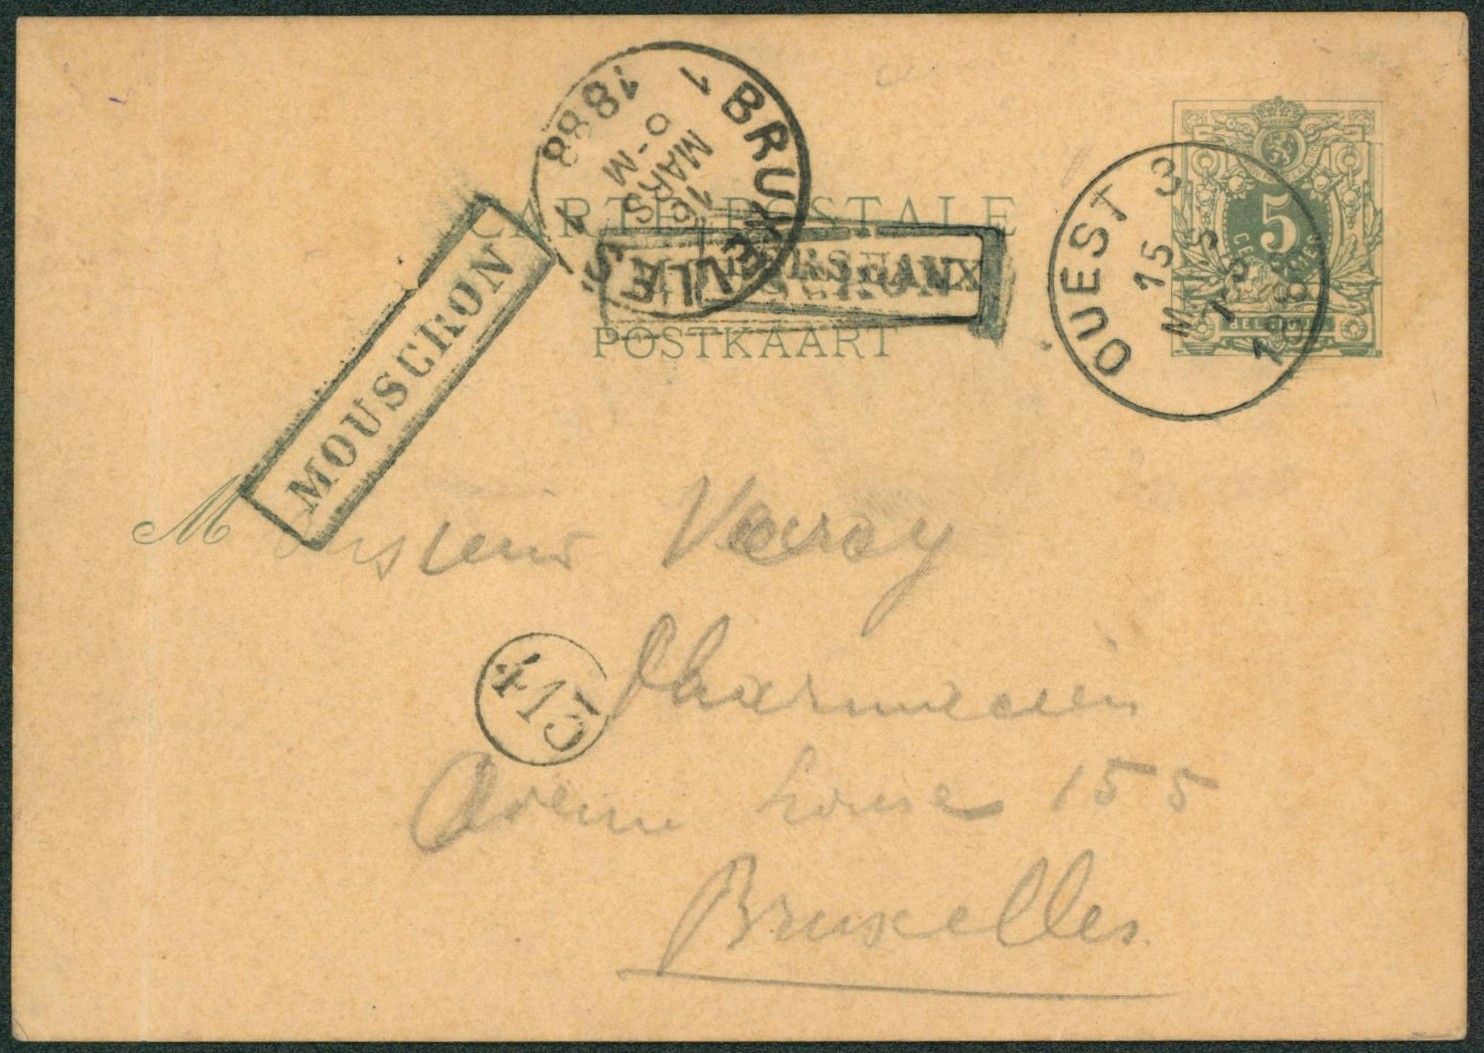 CARTE POSTALE
POSTKAART
5
CENTIMES
BELGIQUE
OUEST 3
15
MARS
1888
BRUXELLES 1
16
MARS
6-M
1888
MOUSCRON
415
Monsieur
Pharmacien
Avenue Louise 155
Bruxelles